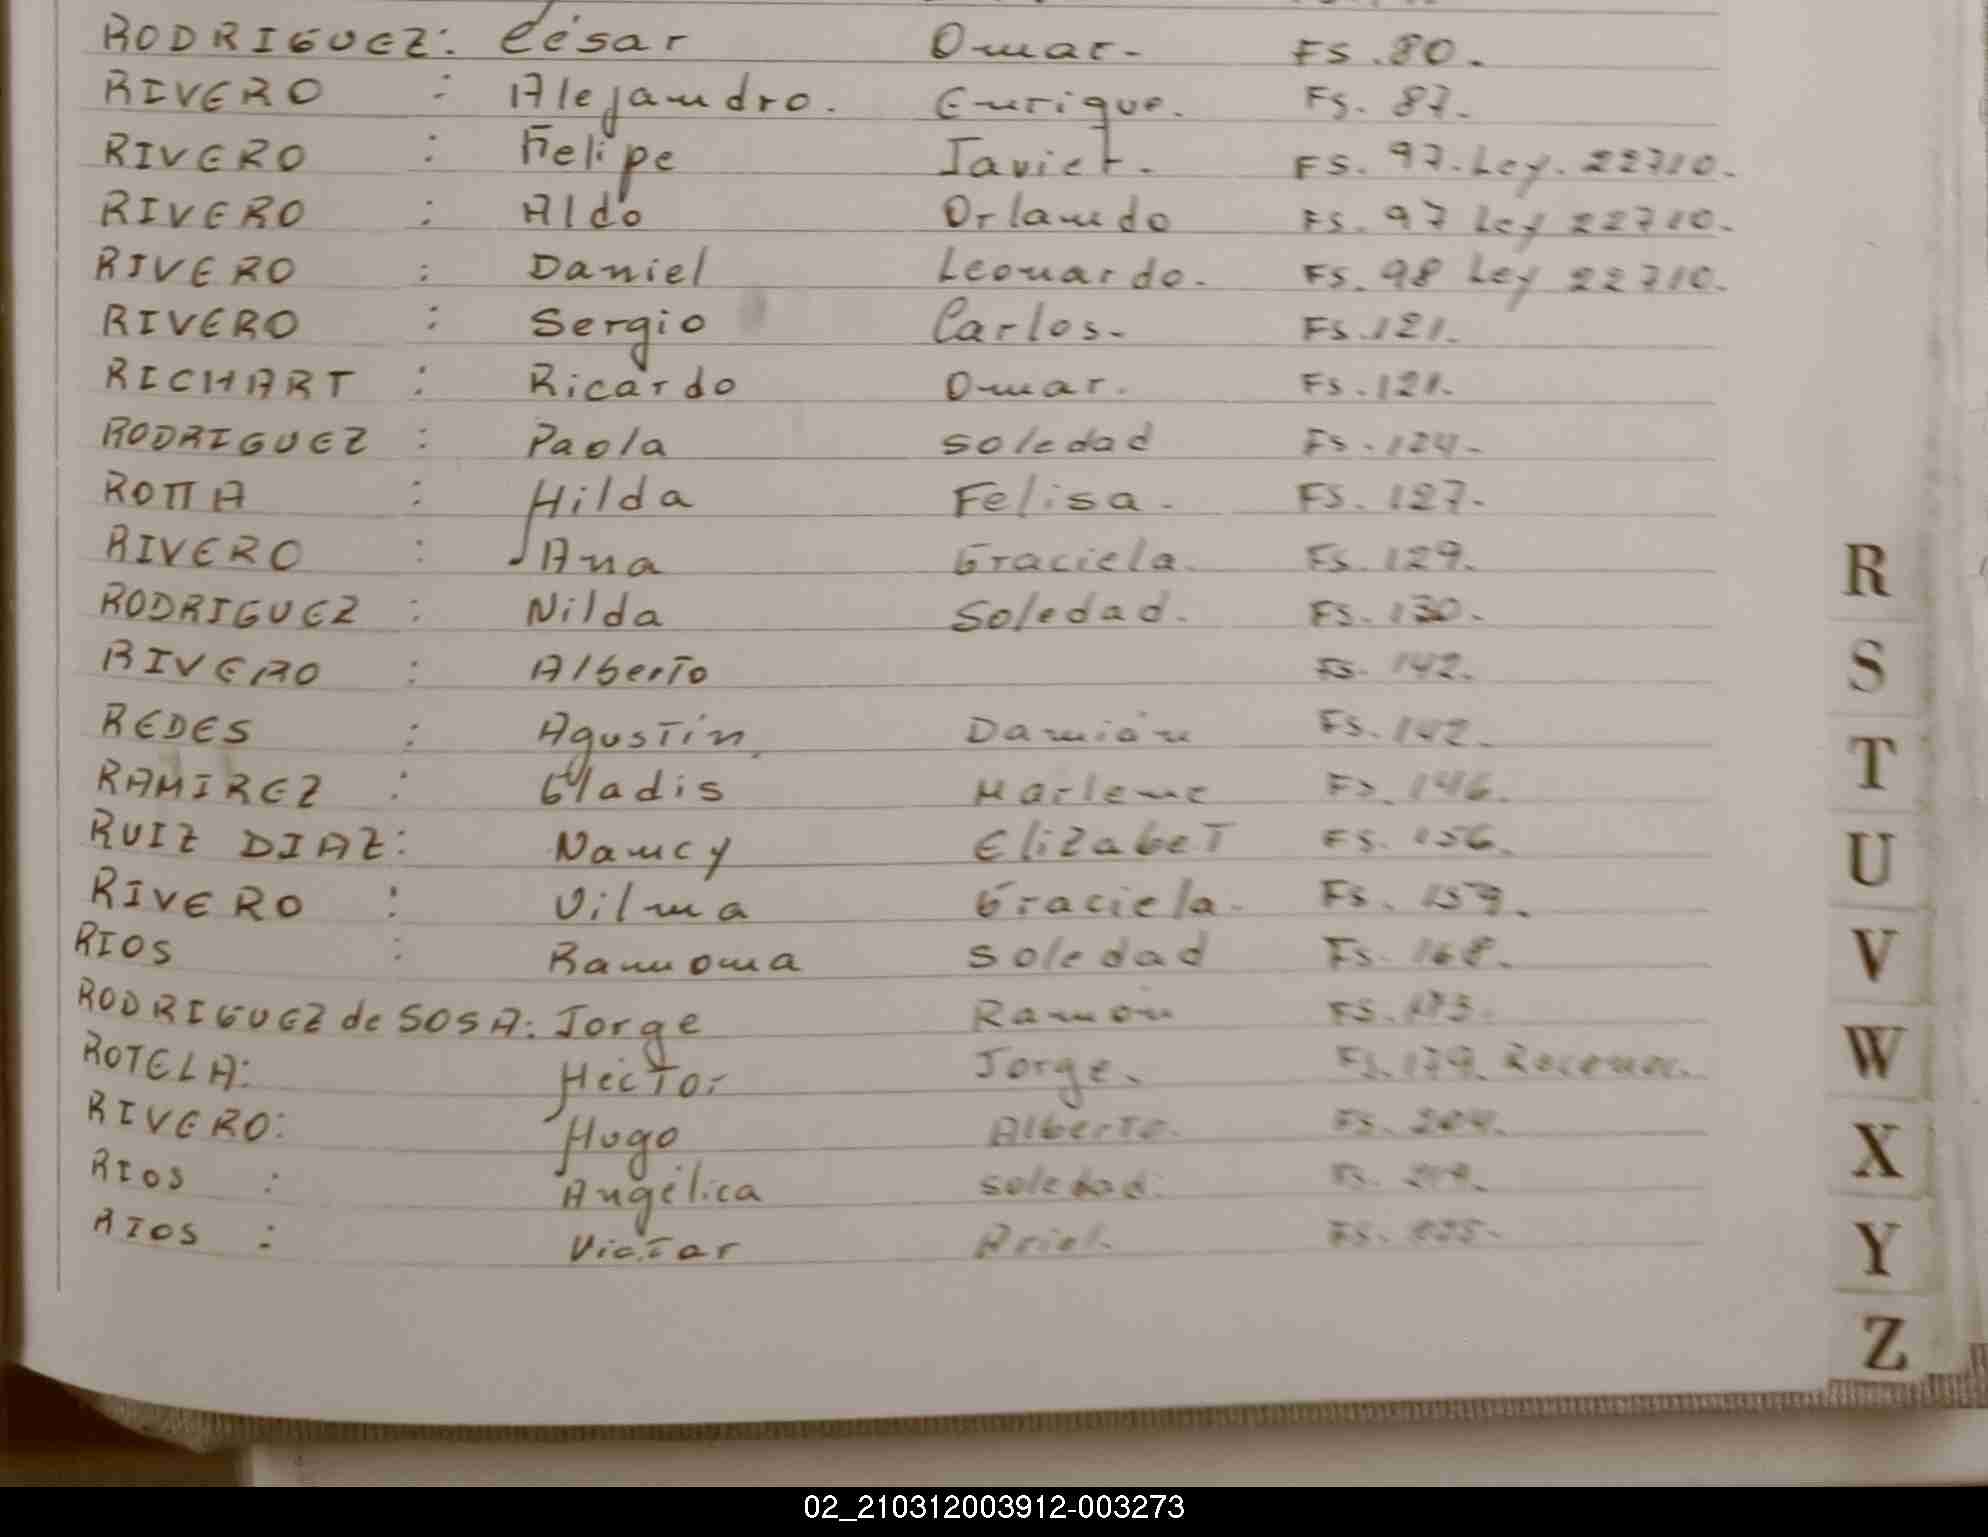 RODRIGUEZ: César Omar- FS.80.
RIVERO : Alejandro. Enrique. Fs. 87.
RIVERO : Felipe Javier. FS. 97. Ley. 22710.
RIVERO : Aldo Orlando FS. 97 Ley 22710.
RIVERO : Daniel Leonardo. Fs. 98 Ley 22710.
RIVERO : Sergio Carlos- FS.121.
RICHART : Ricardo Omar. Fs.121.
RODRIGUEZ : Paola Soledad Fs.124-
ROTTA : Hilda Felisa. FS. 127.
RIVERO : Ana Graciela. Fs. 129.
RODRIGUEZ : Nilda Soledad. FS. 130.
RIVERO : Alberto Fs. 142.
REDES : Agustín. Damión Fs. 142.
RAMIREZ : Gladis Marlene Fs. 146.
RUIZ DIAZ: Nancy ElizabeT FS. 156.
RIVERO : Vilma Graciela- Fs. 159.
RIOS : Ramona Soledad Fs. 168.
RODRIGUEZ de SOSA: Jorge Ramón FS. 173.
ROTELA: HecTor Jorge. Fs.179.
RIVERO: Hugo Alberto. Fs. 204.
RIOS : Angélica soledad. Fs.
RIOS : Victar Ariel. Fs.
R
S
T
U
V
W
X
Y
Z
02_210312003912-003273